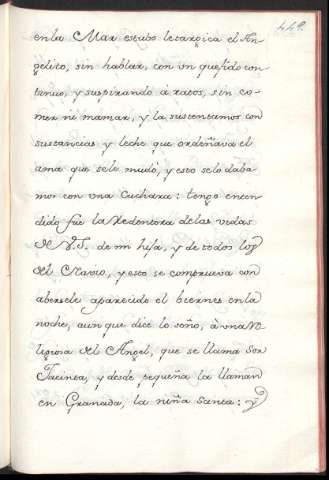 449.
en la Mar estubo letargica el An-
gelito, sin hablar, con un quejido con
tinuo, y suspirando a ratos, sin co-
mer ni mamar, y la sustentamos con
sustancias y leche que ordeñava el
ama que se le mudó, y esto se lo daba
mos con una Cuchara: tengo enten
dido fue la Redentora de las vidas
de V.S. de mi hija, y de todos los
del Navio, y esto se comprueva con
aberse le aparecido el biernes en la
noche, aunque dice lo soño, à una Re
ligiosa del Angel, que se llama Sor
Jacinta, y desde pequeña la llaman
en Granada, la niña Santa: y